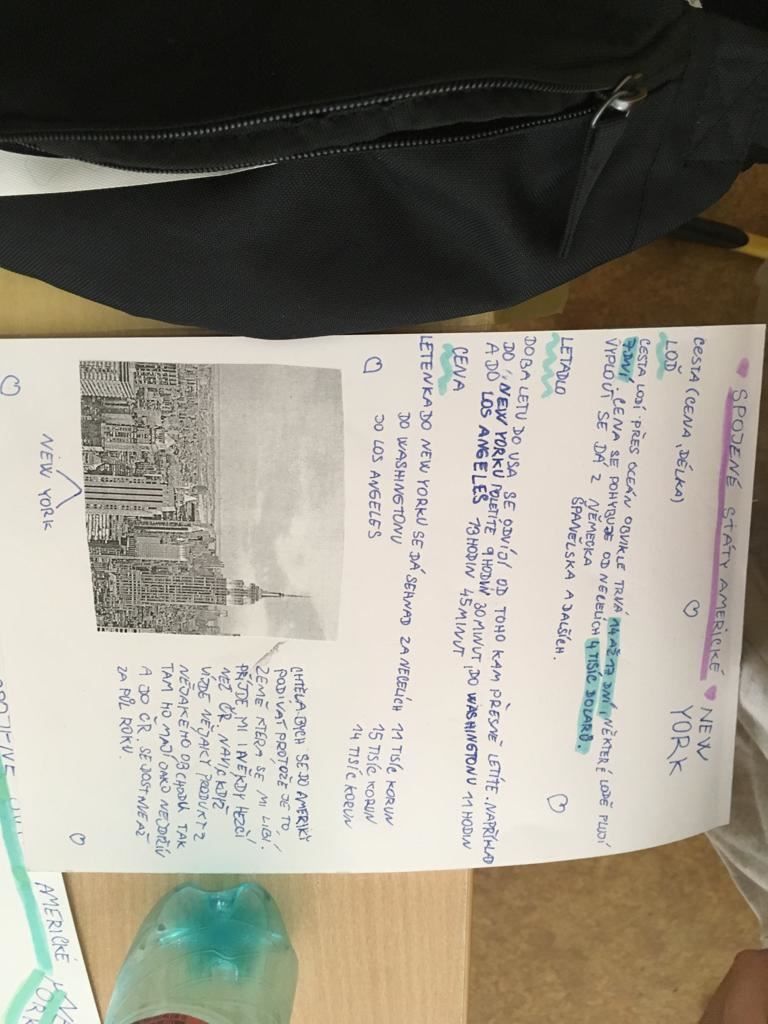 SPOJENÉ STÁTY AMERICKÉ
NEW
YORK
CESTA (CENA, DÉLKA)
LOĎ
CESTA LODÍ PŘES OCEÁN OBVIKLE TRVÁ 14 AŽ 17 DNÍ, NĚKTERÉ LODĚ PLUJÍ
7 DNÍ. CENA SE POHYBUJE OD NECELÍCH 4 TISÍC DOLARŮ.
VYPLOUT SE DÁ Z NĚMECKA
ŠPANĚLSKA A DALŠÍCH.
LETADLO
DOBA LETU DO USA SE ODVÍJÍ OD TOHO KAM PŘESNĚ LETÍTE. NAPŘÍKLAD
DO NEW YORKU POLETÍTE 9 HODIN 30 MINUT, DO WASHINGTONU 11 HODIN
A DO LOS ANGELES 13 HODIN 45 MINUT
CENA
LETENKA DO NEW YORKU SE DÁ SEHNAD ZA NECELÍCH 11 TISÍC KORUN
DO WASHINGTONU 15 TISÍC KORUN
DO LOS ANGELES 14 TISÍC KORUN
CHTĚLA BYCH SE DO AMERIKY
PODÍVAT PROTOŽE JE TO
ZEMĚ KTERÁ SE MI LÍBÍ.
PŘIJDE MI I NĚKDY HEZČÍ
NEŽ ČR. NAVÍC KDYŽ
VIJDE NĚJAKÝ PRODUKT Z
NĚJAKÉHO OBCHODU TAK
TAM HO MAJÍ JAKO NEJDŘÍV
A DO ČR SE DOSTNE AŽ
ZA PŮL ROKU.
NEW YORK
AMERICKÉ
YORK